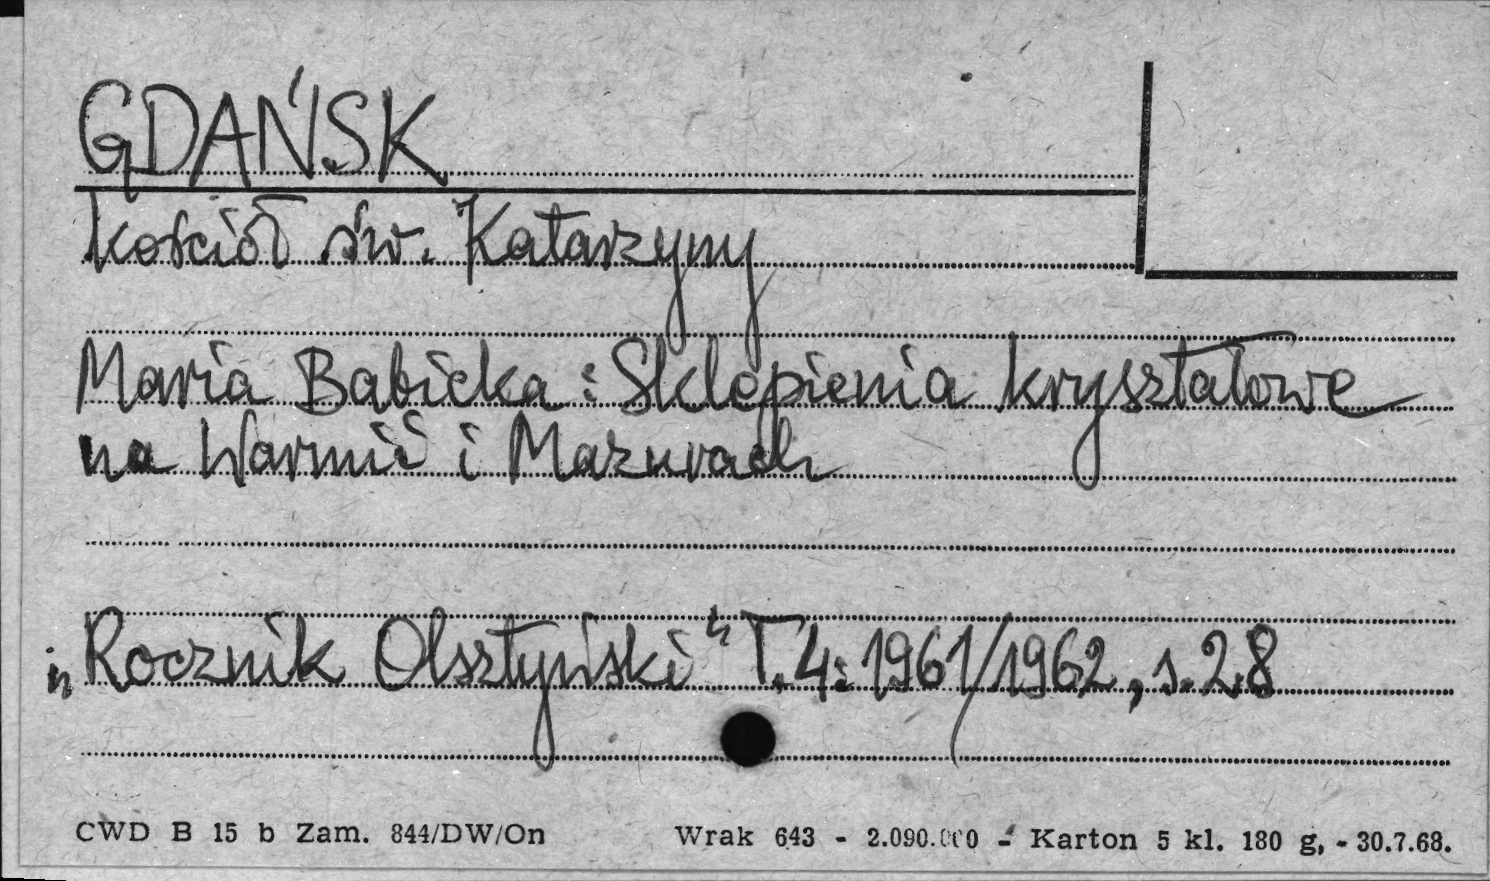 GDAŃSK
kościół św. Katarzyny
Maria Babicka: Sklepienia kryształowe
na Warmii i Mazurach
„Rocznik Olsztyński" T.4: 1961/1962, s. 28
CWD B 15 b Zam. 844/DW/On Wrak 643 - 2.090.000 - Karton 5 kl. 180 g, - 30.7.68.